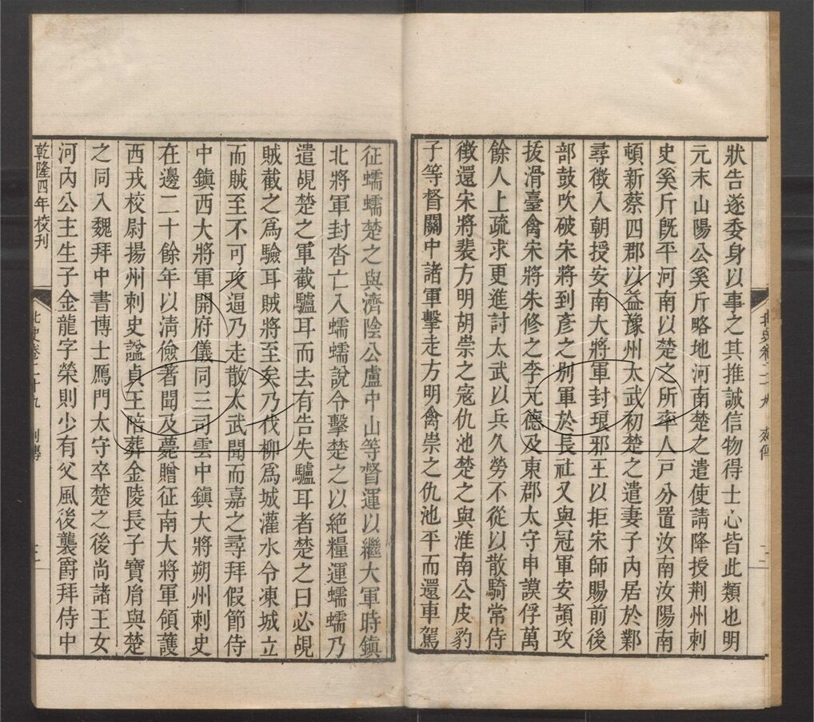 狀告遂委身以事之其推誠信物得士心皆此類也明
元末山陽公奚斤略地河南楚之遣使請降授荆州刺
史奚斤旣平河南以楚之所率人戸分置汝南汝陽南
頓新蔡四郡以益豫州太武初楚之遣妻子內居於鄴
尋徵入朝授安南大將軍封琅邪王以拒宋師賜前後
部鼓吹破宋將到彥之別軍於長社又與冠軍安頡攻
拔滑臺禽宋將朱修之李元德及東郡太守申謨俘萬
餘人上疏求更進討太武以兵久勞不從以散騎常侍
徵還宋將裴方明胡崇之寇仇池楚之與淮南公皮豹
子等督關中諸軍擊走方明禽崇之仇池平而還車駕
征蠕蠕楚之與濟陰公盧中山等督運以繼大軍時鎮
北將軍封沓亡入蠕蠕說令擊楚之以絶糧運蠕蠕乃
遣覘楚之軍截驢耳而去有告失驢耳者楚之曰必覘
賊截之爲驗耳賊將至矣乃伐柳爲城灌水令凍城立
而賊至不可攻逼乃走散太武聞而嘉之尋拜假節侍
中鎮西大將軍開府儀同三司雲中鎮大將朔州刺史
在邊二十餘年以淸儉著聞及薨贈征南大將軍領護
西戎校尉揚州刺史諡貞王陪葬金陵長子寶脣與楚
之同入魏拜中書博士鴈門太守卒楚之後尚諸王女
河內公主生子金龍字榮則少有父風後襲爵拜侍中
乾隆四年校刊
北史卷二十九 列傳